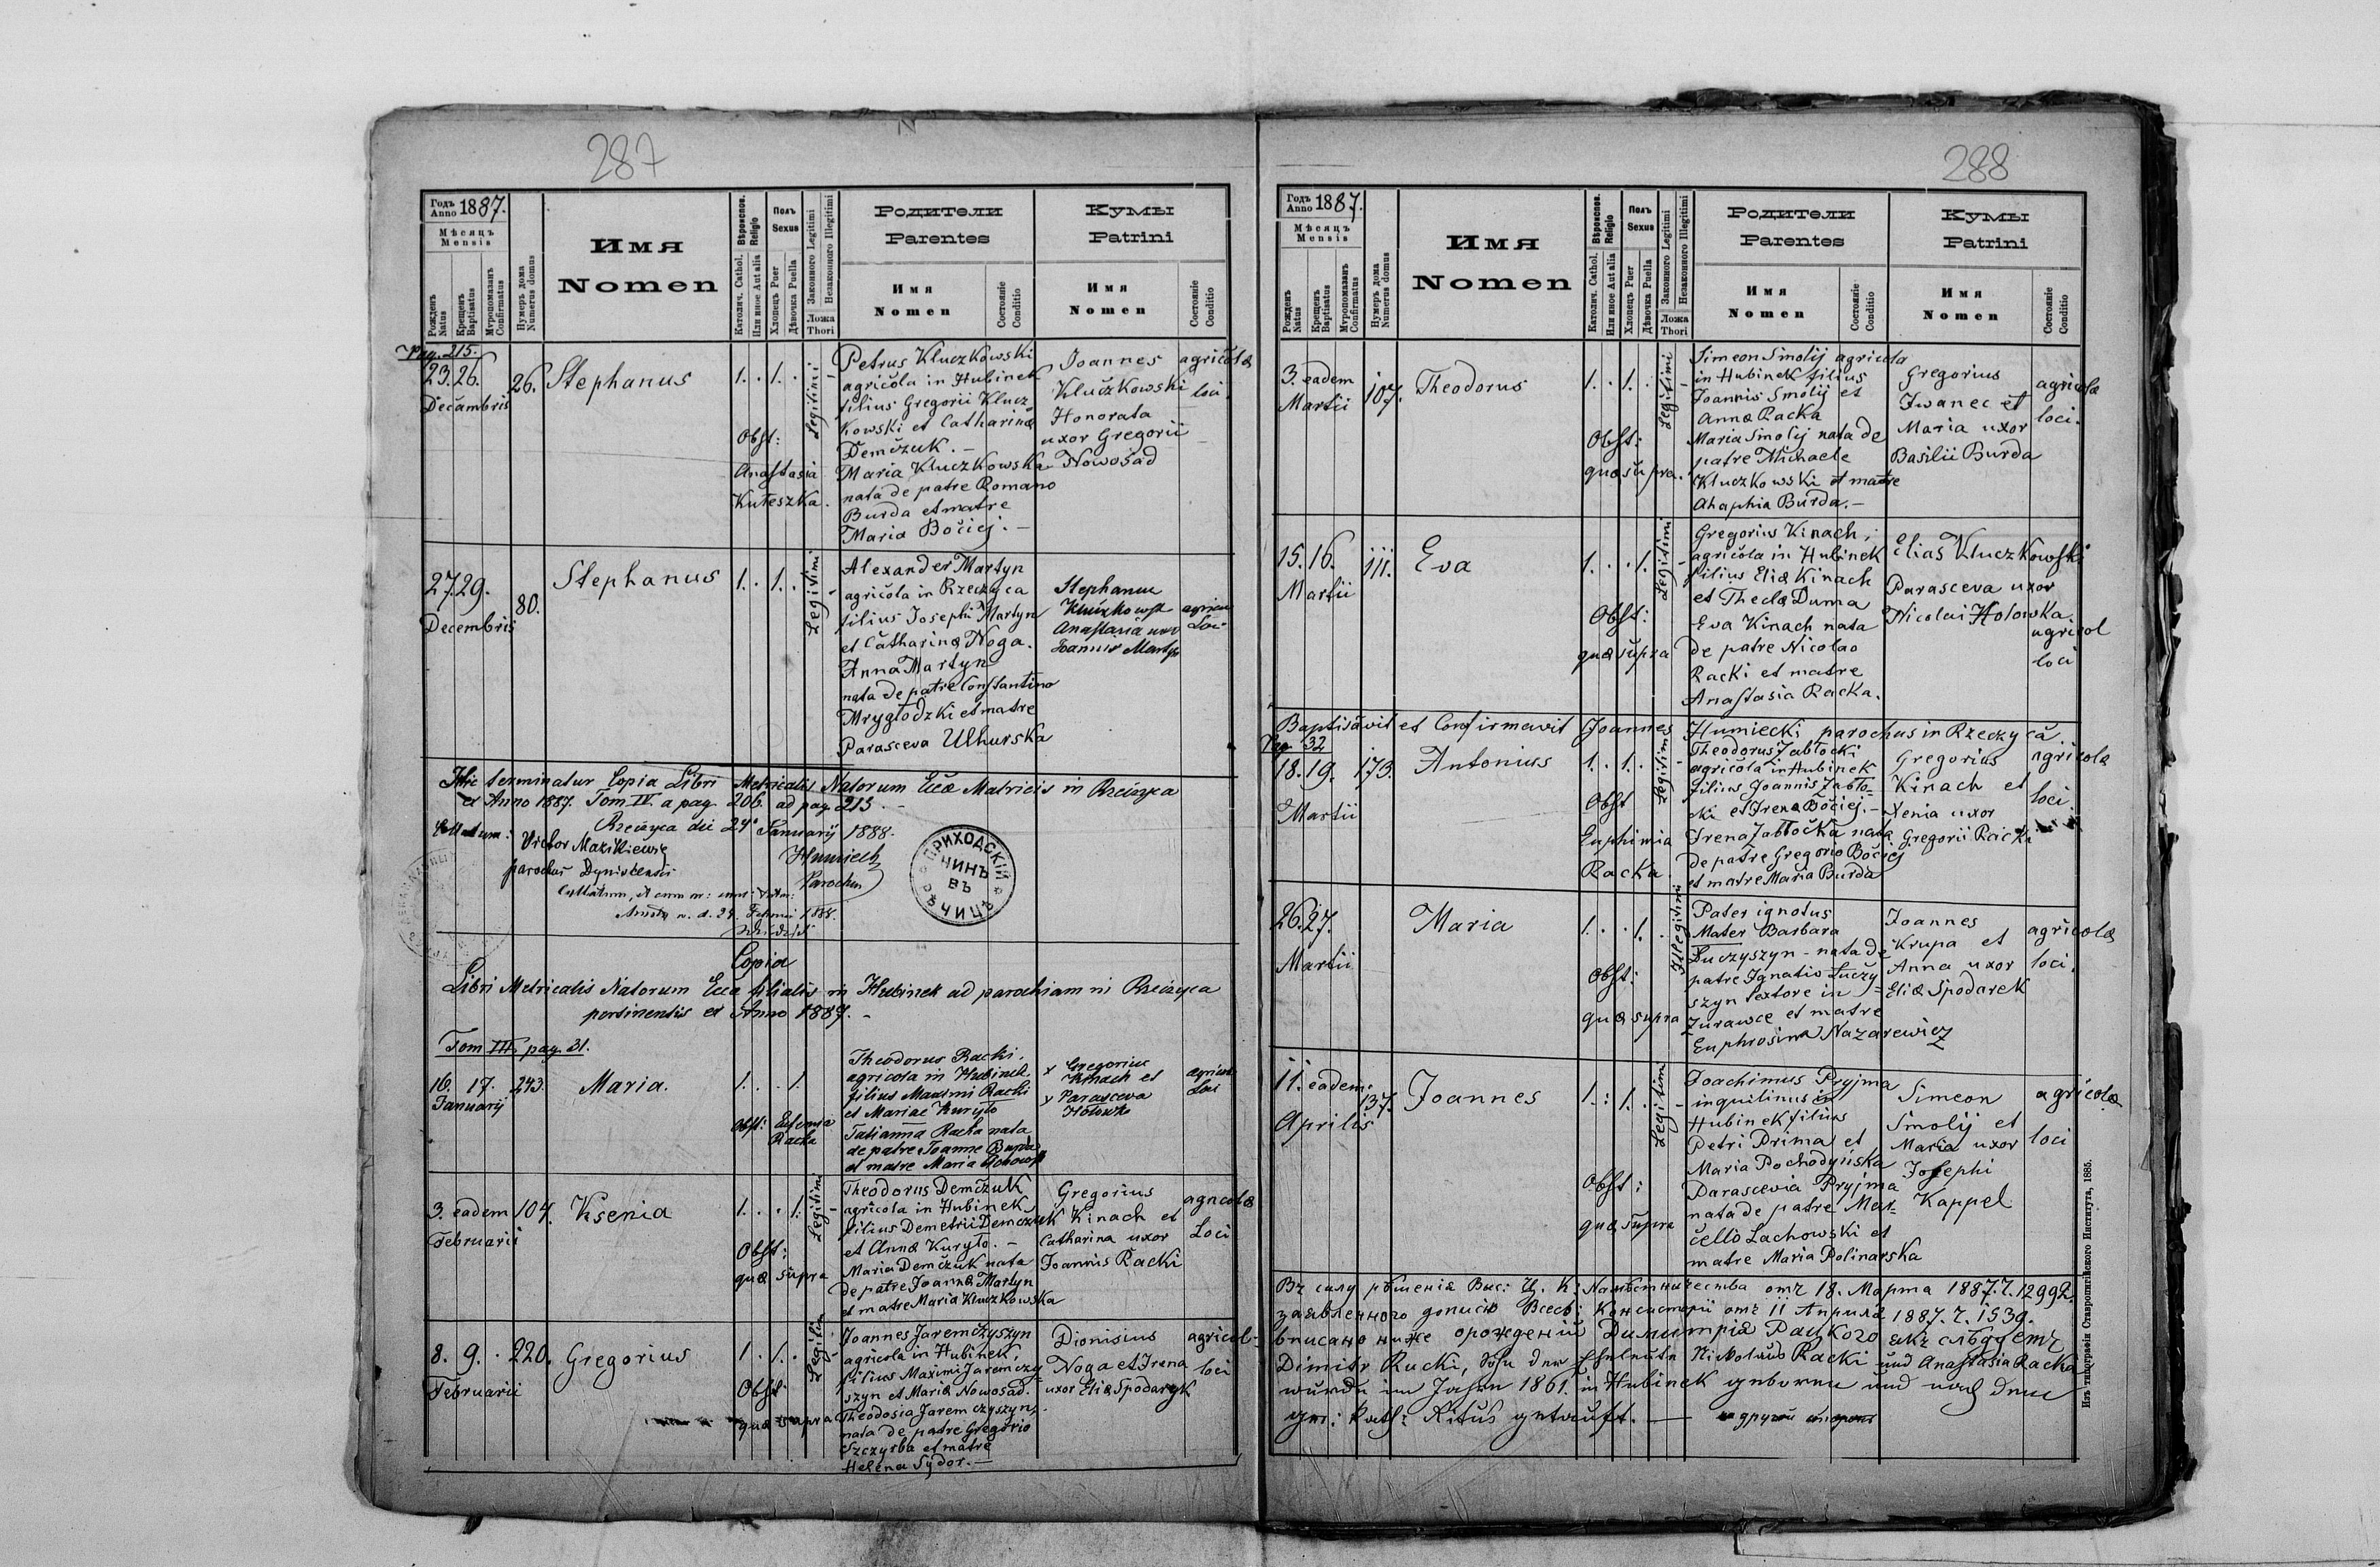 287
Годъ Anno 1887.
Мѣсяцъ Mensis
Рожденъ Natus
Крещенъ Baptisatus
Мѵропомазанъ Confirmatus
Нумеръ дома Numerus domus
Имя
Nomen
Вѣроиспов. Religio
Католич. Cathol.
Или иное Aut alia
Полъ Sexus
Хлопецъ Puer
Дѣвочка Puella
Законного Legitimi
Незаконного Illegitimi
Ложа Thori
Родители
Parentes
Имя
Nomen
Состояніе
Conditio
Кумы
Patrini
Имя
Nomen
Состояніе
Conditio
Pag. 215.
23. 26. Decambris
26.
Stephanus
1. . 1. .
Legitimi
Obst:
Anastasia
Kuteszka.
Petrus Kluczkowski
agricola in Hubinek
filius Gregorii Klucz
kowski et Catharinæ
Demczuk. —
Maria Kluczkowska
nata de patre Romano
Burda et matre
Maria Bociej. —
Joannes
Kluczkowski
Honorata
uxor Gregorii
Nowosad
agricolæ
loci.
27. 29.
Decembris
80.
Stephanus
1. . 1. .
Legitimi
Alexander Martyn
agricola in Rzeczyca
filius Josephi Martyn
et Catharinæ Noga.
Anna Martyn
nata de patre Constantino
Mrygłodzki et matre
Parasceva Ulhurska
Stephanus
Anastasia uxor
Joannis Martyn
Loci
Hic terminatur Copia Libri Metricalis Natorum Eccæ Matricis in Rzeczyca
ex Anno 1887. Tom IV. a pag. 206. ad pag. 215. —
Rzeczyca die 24 Januarij 1888.
Victor
parochus
Parochus
ПРИХОДСКІЙ ЧИНЪ ВЪ
Copia
Libri Metricalis Natorum Eccæ filialis in Hubinek ad parochiam in Rzeczyca
pertinentis ex Anno 1887. —
Tom III. pag. 31.
16. 17.
Januarij
243.
Maria.
1. . . 1.
Obst: Eufemia
Racka
Theodorus Racki,
agricola in Hubinek,
filius Maximi Racki
et Mariae Kuryło
Tatianna Racka nata
de patre Joanne Burda
et matre Maria
Gregorius
Kinach et
Parasceva
agricolæ
Loci
3. eadem
Februarii
104.
Ksenia
1. . . 1.
Legitimi
Obst:
quæ supra
Theodorus Demczuk
agricola in Hubinek
filius Demetrii Demczuk
et Annæ Kuryło. —
Maria Demczuk nata
de patre Joannæ Martyn
et matre Maria Kluczkowska
Gregorius
Kinach et
Catharina uxor
Joannis Racki
agricolæ
Loci
8. 9. .
Februarii
220.
Gregorius
1. . 1. .
Legitim
Obst:
quæ supra
Joannes Jaremczyszyn
agricola in Hubinek,
filius Maximi Jaremczy=
szyn et Mariæ Nowosad.
Theodosia Jaremczyszyn,
nata de patre Gregorio
Szczyrba et matre
Helena Sydor. —
Dionisius
Noga et Irena
uxor Eliæ Spodaryk
agricol
loci
288
Годъ Anno 1887.
Мѣсяцъ Mensis
Рожденъ Natus
Крещенъ Baptisatus
Мѵропомазанъ Confirmatus
Нумеръ дома Numerus domus
Имя
Nomen
Вѣроиспов. Religio
Католич. Cathol.
Или иное Aut alia
Полъ Sexus
Хлопецъ Puer
Дѣвочка Puella
Законного Legitimi
Незаконного Illegitimi
Ложа Thori
Родители
Parentes
Имя
Nomen
Состояніе
Conditio
Кумы
Patrini
Имя
Nomen
Состояніе
Conditio
3. eadem
Martii
107.
Theodorus
1. . 1. .
Legitimi
Obst:
quæ supra.
Simeon Smolij agricola
in Hubinek filius
Joannis Smolij et
Annæ Racka
Maria Smolij nata de
patre Michaele
Kluczkowski et matre
Ahaphia Burda. —
Gregorius
Iwanec et
Maria uxor
Basilii Burda
agricolæ
loci.
15. 16.
Martii
111.
Eva
1. . . 1.
Legitimi
Obst:
quæ supra
Gregorius Kinach,
agricola in Hubinek
filius Eliæ Kinach
et Theclæ Duma
Eva Kinach nata
de patre Nicolao
Racki et matre
Anastasia Racka.
Elias Kluczkowski
Parasceva uxor
Nicolai Hołowka
agricol
loci
Baptisavit et Confirmavit Joannes Humiecki parochus in Rzeczyca.
Pag. 32
18. 19.
Martii
173.
Antonius
1. . 1. .
Legitimi
Obst
Euphimia
Racka.
Theodorus Zabłocki
agricola in Hubinek
filius Joannis Zabło-
cki et Irenæ Bociej. —
Irena Zabłocka nata
de patre Gregorio Bociej
et matre Maria Burda
Gregorius
Kinach et
Xenia uxor
Gregorii Racki
agricolæ
loci.
26. 27.
Martii
Maria
1. . . 1. .
Illegitimi
Obst:
quæ supra
Pater ignotus
Mater Barbara
Łuczyszyn - nata de
patre Ignatio Łuczy=
szyn textore in
Zurawce et matre
Euphrosina Nazarewicz
Joannes
Krupa et
Anna uxor
Eliæ Spodarek
agricolæ
loci.
11. eadem.
Aprilis
137.
Joannes
1. : 1. .
Legitimi
Obst:
quæ supra
Joachimus Pryjma
inquilinus in
Hubinek filius
Petri Prima et
Maria Pochodyńska
Parascevia Pryjma
nata de patre Mar-
cello Lachowski et
matre Maria Polinarska
Simeon
Smolij et
Maria uxor
Josephi
Kappel
agricolæ
loci
Въ силу рѣшенія Выс: Ц. К: Намѣстничества отъ 18. Марта 1887. ч. 12992.
заявленного допись Всесв: Консисторіи отъ 11 Априля 1887. ч. 1539.
вписано ниже орожденіи Димитрія Рацкого якъ слѣдуетъ
Dimitr Racki, Sohn der Eheleute Nikolaus Racki und Anastasia Racka
wurde im Jahre 1861. in Hubinek geboren und nach dem
gr: kath: Ritus getauft. —
Изъ типографіи Ставропигійского Института, 1885.